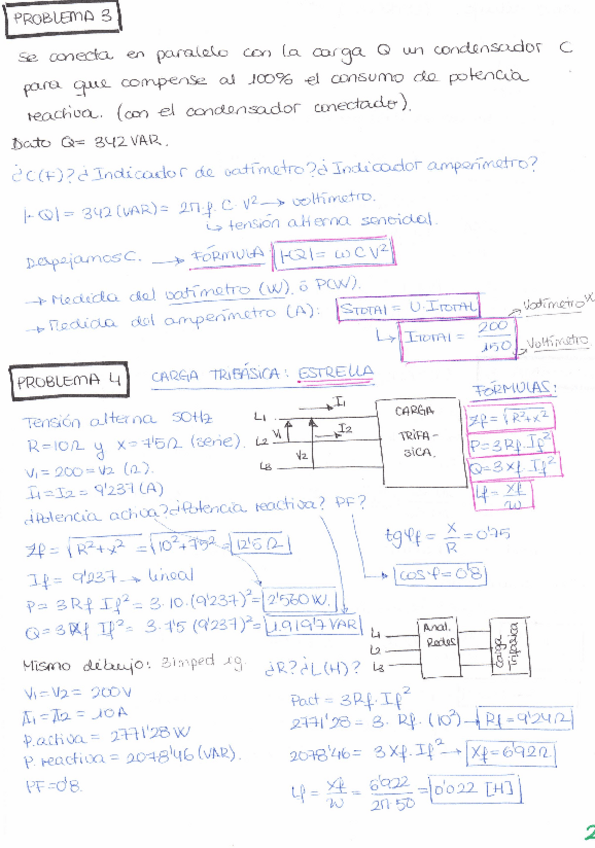 PROBLEMA 3
Se conecta en paralelo con la carga Q un condensador C
para que compense al 100% el consumo de potencia
reactiva. (con el condensador conectado).
Dato Q= 342 VAR.
¿C(F)? ¿Indicador de vatímetro? ¿Indicador amperímetro?
|-Q| = 342 (VAR) = 2π.f. C V² → voltímetro.
↳ tensión alterna senoidal.
Despejamos C. → FÓRMULA |-Q| = ω C V²
→ Medida del vatímetro (W). ó P(W).
→ Medida del amperímetro (A): STOTAL = U. ITOTAL
↳ ITOTAL = 200/150
Vatímetro
Voltímetro
PROBLEMA 4 CARGA TRIFÁSICA: ESTRELLA
FÓRMULAS:
Tensión alterna 50Hz
R=10Ω y X=7'5Ω (serie).
V1=200=V2 (Ω).
I1=I2= 9'237(A)
L1 I1
V1 L2 I2
V2
L3
CARGA
TRIFA-
SICA.
Zf=√R²+X²
P=3Rf.If²
Q=3Xf.If²
Lf = Xf/ω
¿Potencia activa? ¿Potencia reactiva? PF?
Zf = √R²+X² = √10²+7'5² = 12'5Ω
tgφf = X/R = 0'75
If = 9'237 → lineal
cosφ = 0'8
P= 3 Rf If² = 3.10.(9'237)² = 2'560 W.
Q= 3Xf If² = 3.7'5 (9'237)² = 1.919'7 VAR
L1
L2
L3
Anal.
Redes
Carga
Trifásica
Mismo dibujo: 3 imped ig. ¿R? ¿L(H)?
V1=V2= 200V
I1=I2 = 10A
P.activa = 2771'28 W
P. reactiva = 2078'46 (VAR).
PF=0'8.
Pact = 3Rf. If²
2771'28 = 3. Rf. (10²) → Rf = 9'24Ω
2078'46 = 3 Xf. If² → Xf = 6'92Ω
Lf = Xf/ω = 6'922/2π.50 = 0'022 [H]
2